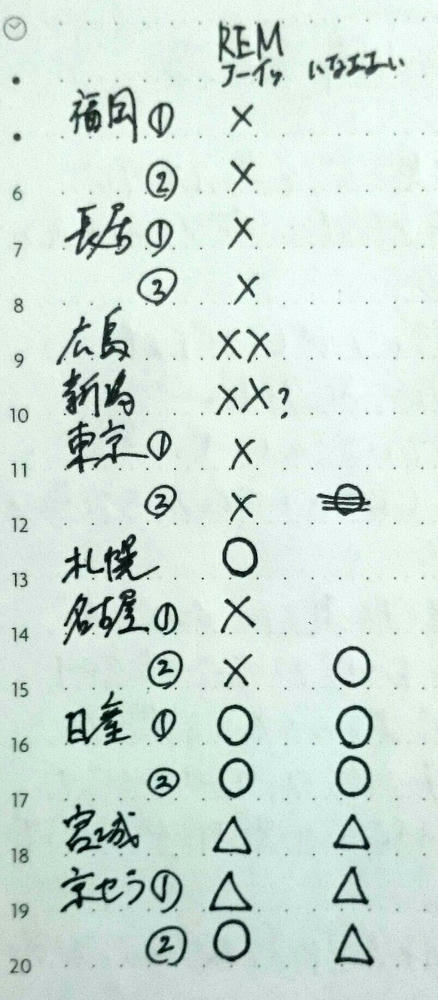 REM
フーイッ いなずまい
福岡 ① ×
6 ② ×
7 長居 ① ×
8 ② ×
9 広島 ××
10 新潟 ××?
11 東京 ① ×
12 ② × ○
13 札幌 ○
14 名古屋 ① ×
15 ② × ○
16 日産 ① ○ ○
17 ② ○ ○
18 宮城 △ △
19 京セラ ① △ △
20 ② ○ △